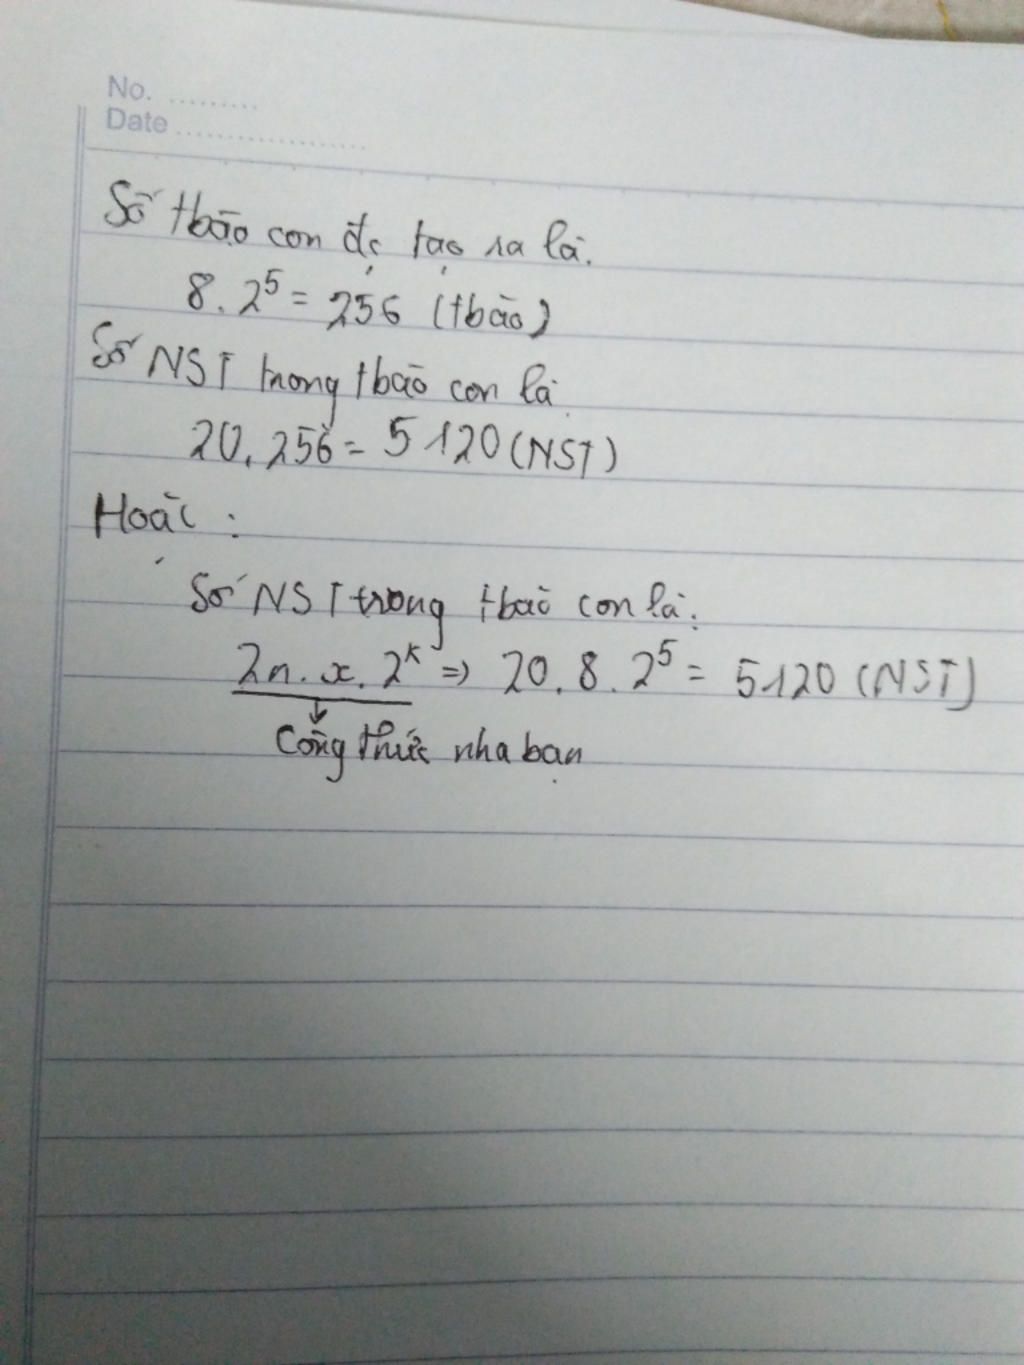 No. .........
Date ..................
Số tbào con đc tạo ra là.
8. 2⁵ = 256 (tbào)
Số NST trong tbào con là
20. 256 = 5120 (NST)
Hoặc :
Số NST trong tbào con là:
2n. x. 2ᵏ => 20. 8. 2⁵ = 5120 (NST)
Công thức nha bạn